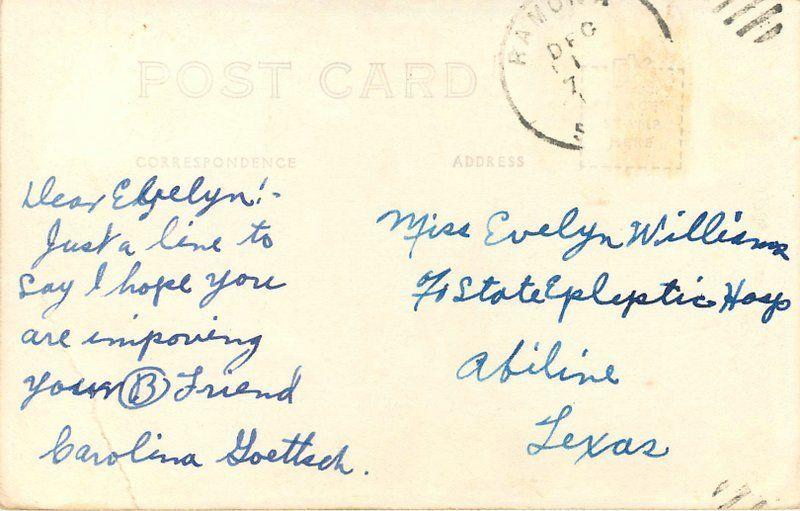 RAMONA
DEC
POST CARD
PLACE
STAMP
HERE
CORRESPONDENCE
ADDRESS
Dear Evelyn!-
Just a line to
say I hope you
are impoving
your B Friend
Carolina Goettsch.
Miss Evelyn Williams
c/o State Epleptic Hosp
Abiline
Texas